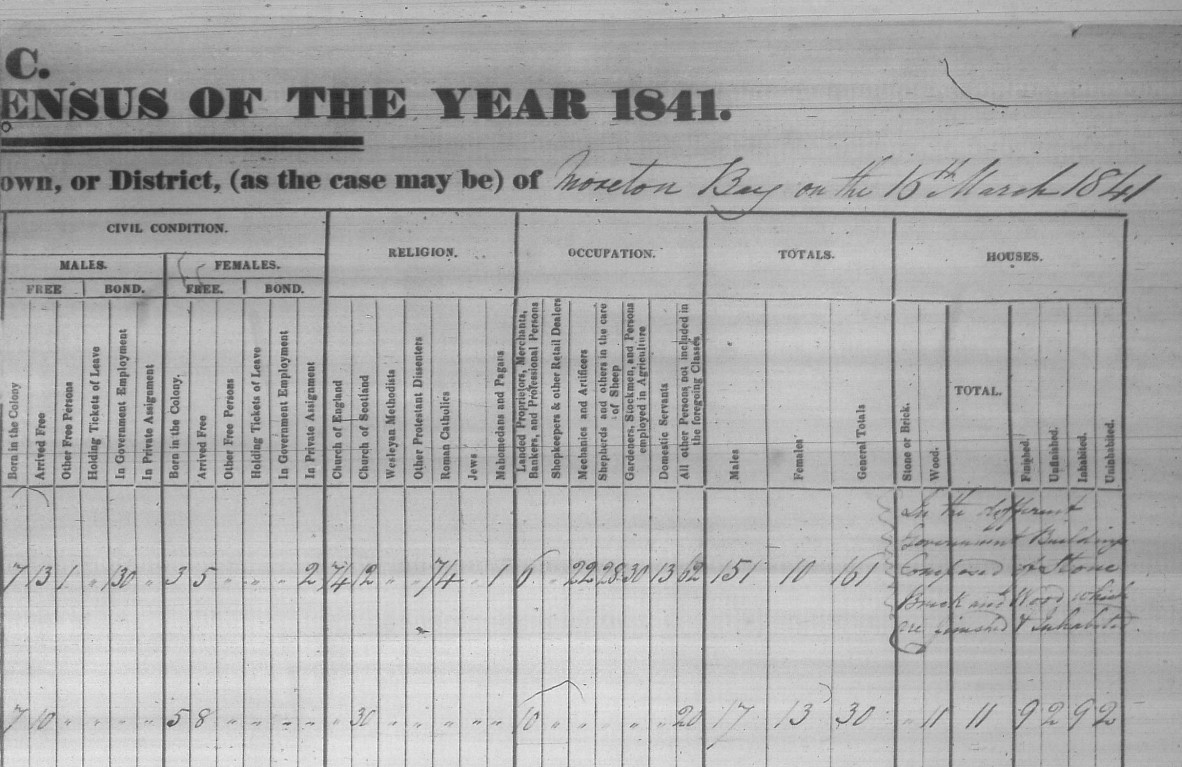 C.
ENSUS OF THE YEAR 1841.
own, or District, (as the case may be) of Moreton Bay on the 16th March 1841
CIVIL CONDITION. RELIGION. OCCUPATION. TOTALS. HOUSES.
MALES. FEMALES.
FREE BOND. FREE. BOND.
Born in the Colony
Arrived Free
Other Free Persons
Holding Tickets of Leave
In Government Employment
In Private Assignment
Born in the Colony.
Arrived Free
Other Free Persons
Holding Tickets of Leave
In Government Employment
In Private Assignment
Church of England
Church of Scotland
Wesleyan Methodists
Other Protestant Dissenters
Roman Catholics
Jews
Mahomedans and Pagans
Landed Proprietors, Merchants,
Bankers, and Professional Persons
Shopkeepers & other Retail Dealers
Mechanics and Artificers
Shepherds and others in the care
of Sheep
Gardeners, Stockmen, and Persons
employed in Agriculture
Domestic Servants
All other Persons not included in
the foregoing Classes
Males
Females
General Totals
Stone or Brick.
Wood.
TOTAL.
Finished.
Unfinished.
Inhabited.
Uninhabited.
7 13 1 " 130 " 3 5 " " " 2 74 12 " " 74 " 1 6 " 22 28 30 13 62 151 10 161
In the different
Government Buildings
Composed of Stone
Brick and Wood which
are finished & inhabited
7 10 " " " " 5 8 " " " " " 30 " " " " " 10 " " " " " 20 17 13 30 " 11 11 9 2 9 2